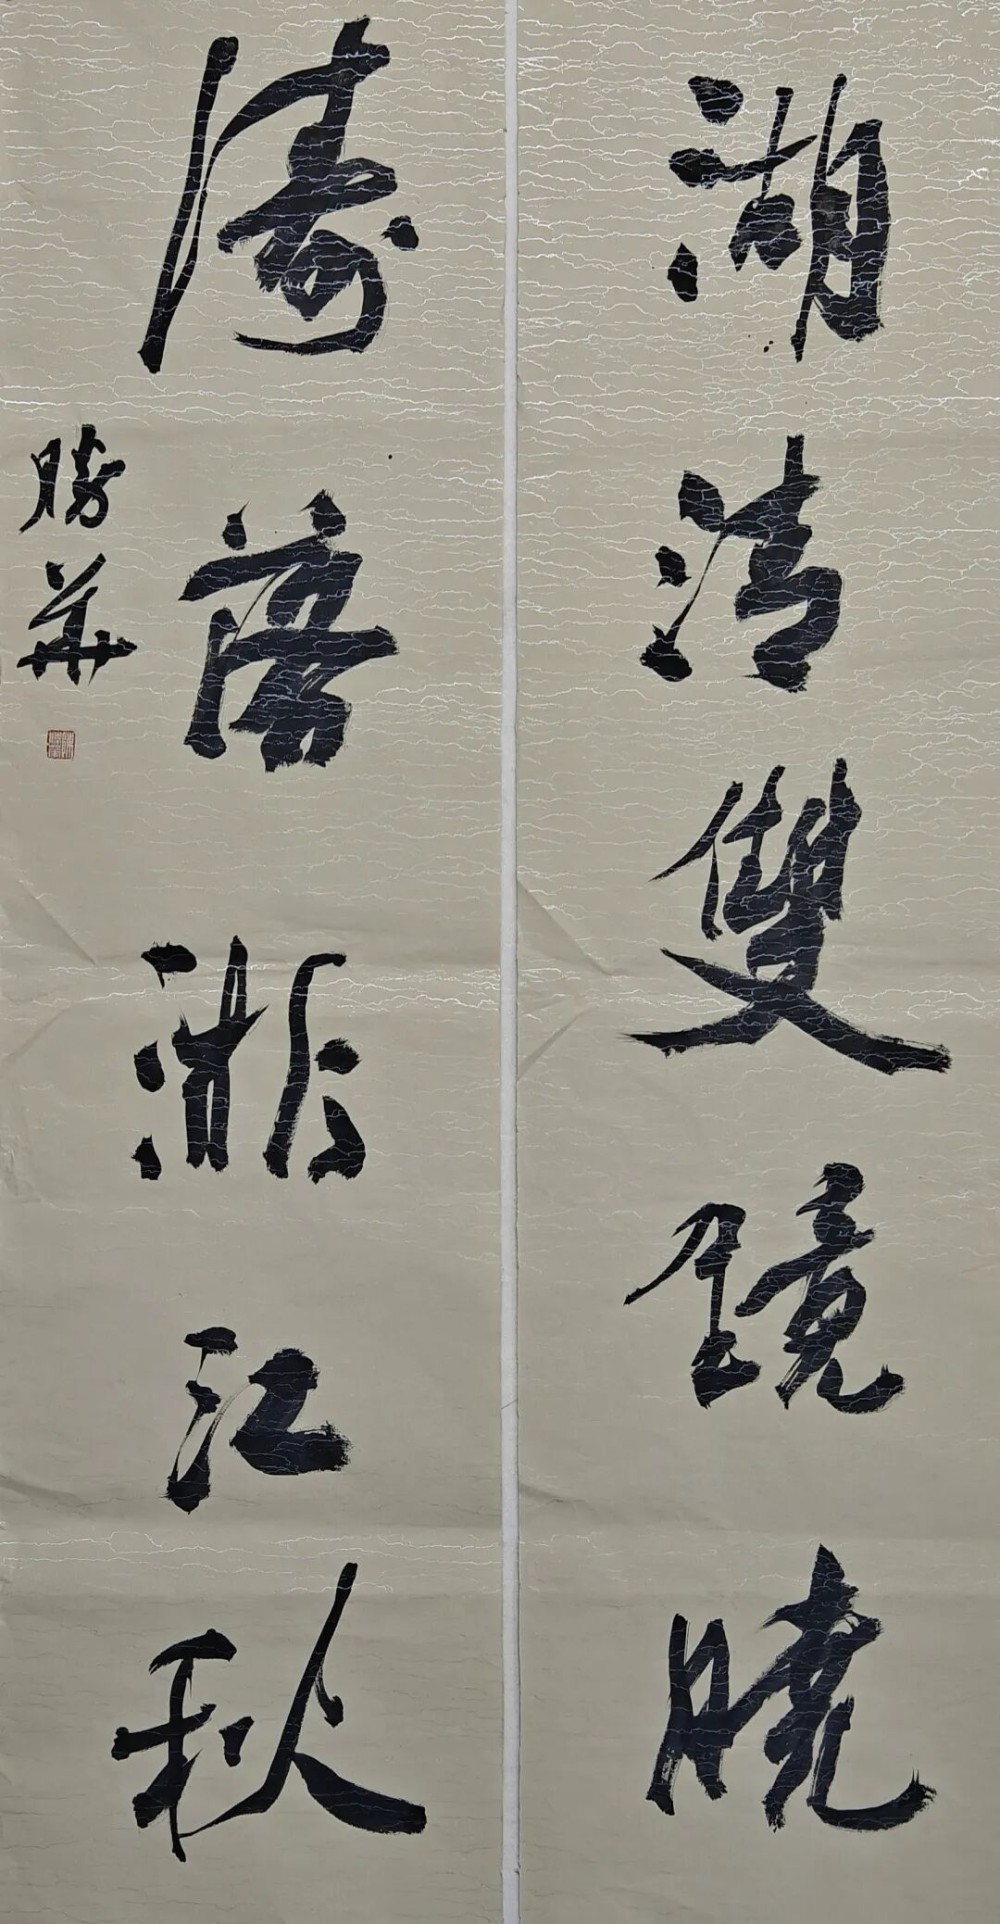 湖清雙鏡曉
濤落浙江秋
勝華